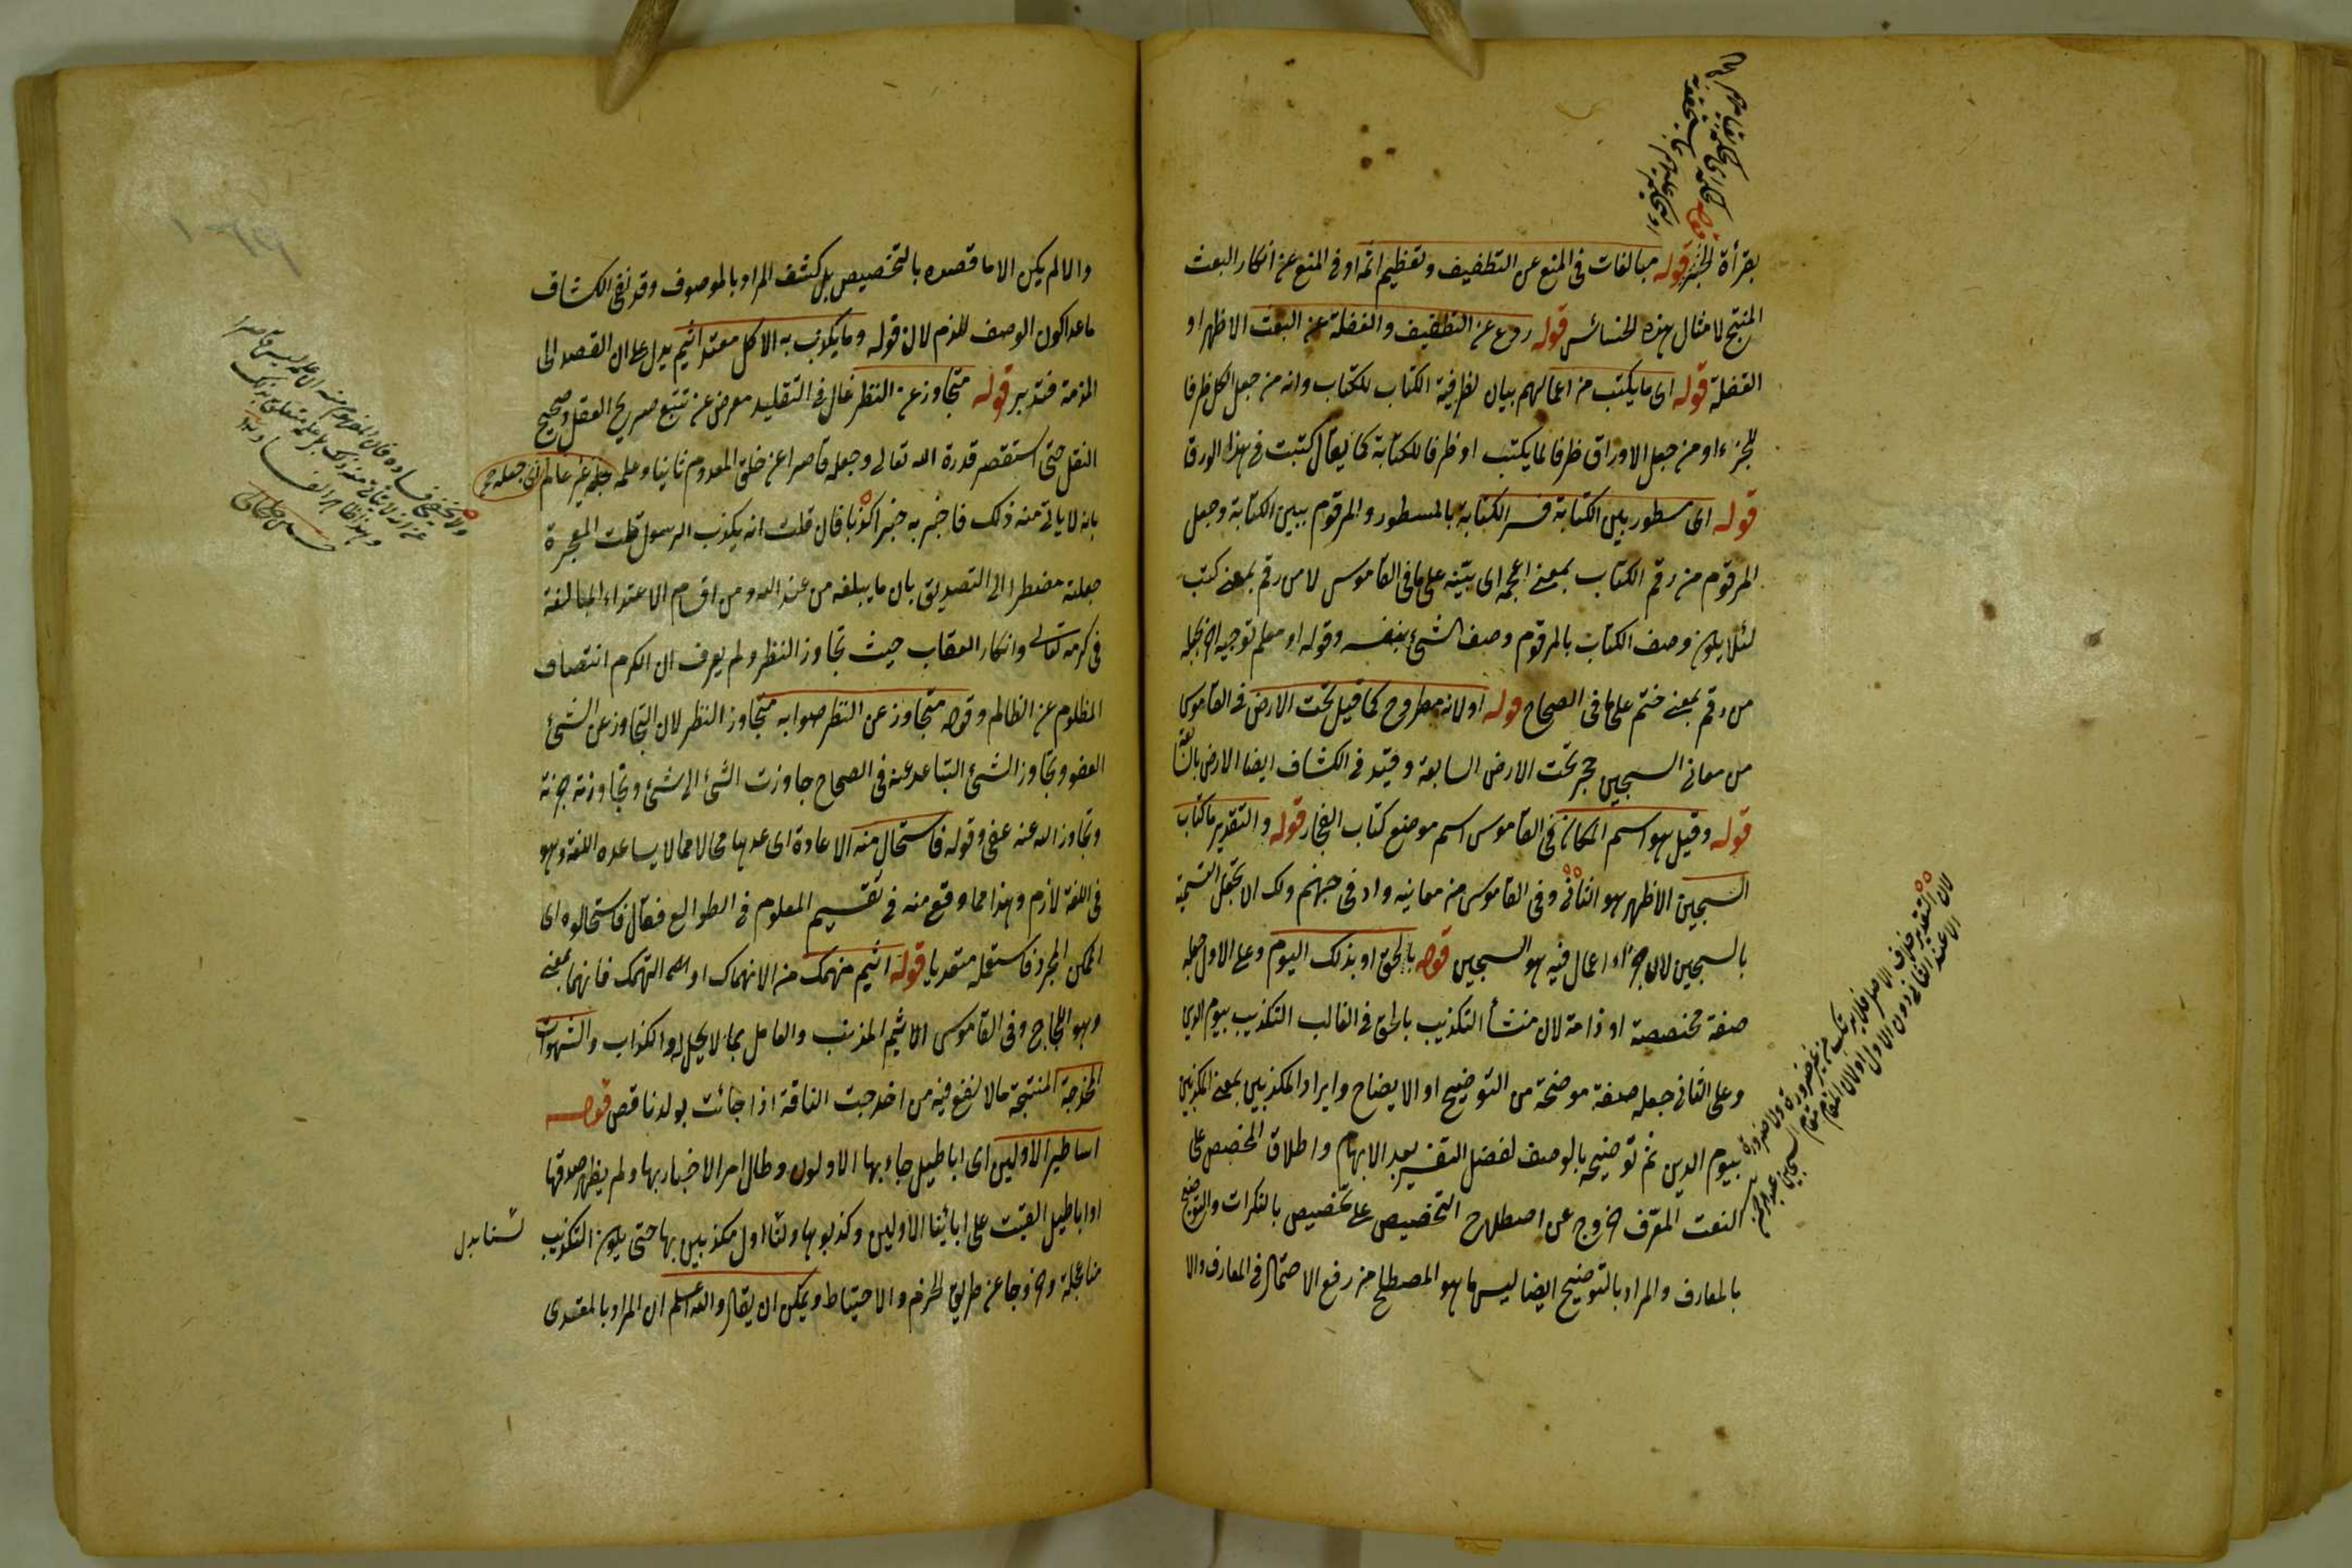 بقرأة الجر قوله مبالغات فى المنع عن التطفيف وتعظيم اثمه او فى المنع عن انكار البعث
المنتج لامثال هذه الخسائس قوله ردع عن التطفيف والغفلة عن البعث الاظهر او
الغفلة قوله اى ما يكتب من اعمالهم بيان لظرفية الكتاب للكتاب وانه من جعل الكل ظرفا
للجزء او من جعل الاوراق ظرفا لما يكتب او ظرفا للكتابة كما يقال كتبت فى هذا الورق
قوله اى مسطور بين الكتابة فسر الكتابة بالمسطور والمرقوم ببين الكتابة وجعل
المرقوم من رقم الكتاب بمعنى اعجمه اى بينه على ما فى القاموس لا من رقم بمعنى كتب
لئلا يكون وصف الكتاب بالمرقوم وصف الشئ بنفسه وقوله او معلم توجيه اخر بجعله
من رقم بمعنى ختم على ما فى الصحاح قوله او لانه مطروح كما قيل تحت الارض فى القاموس
من معانى السجين حجر تحت الارض السابعة وقيد فى الكشاف ايضا الارض بالسابعة
قوله وقيل هو اسم المكان فى القاموس اسم موضع كتاب الفجار قوله والتقدير ما كتاب
السجين الاظهر هو الثانى وفى القاموس من معانيه واد فى جهنم ولك ان تجعل التسمية
بالسجين لان جزاء اعمال فيه هو السجين قوله بالحق او بذلك اليوم وعلى الاول جعله
صفة مخصصة او ذامة لان منشأ التكذيب بالحق فى الغالب التكذيب بيوم الدين
وعلى الثانى جعله صفة موضحة من التوضيح او الايضاح وايراد المكذبين بمعنى المكذبين
بيوم الدين ثم توضيحه بالوصف لفضل التفسير بعد الابهام واطلاق المخصص على
النعت المعرف خروج عن اصطلاح التخصيص على تخصيص بالنكرات والتوضيح
بالمعارف والمراد بالتوضيح ايضا ليس ما هو المصطلح من رفع الاحتمال فى المعارف والا
لان التقدير خلاف الاصل فلا يرتكب من غير ضرورة ولا ضرورة
الا عند الثانى دون الاول او لان المقام مقام السجين
والا لم يكن الا ما قصده بالتخصيص بل كشف المراد بالموصوف وقد نفى الكشاف
ما عدا كون الوصف للذم لان قوله وما يكذب به الا كل معتد اثيم يدل على ان القصد الى
المذمة فتدبر قوله متجاوز عن النظر غال فى التقليد معرض عن تتبع صريح العقل وصحيح
النقل حتى استقصر قدرة الله تعالى وجعله قاصرا عن خلق المعدوم ثانيا وعلمه بجعله غير عالم
بانه لا يأتى منه ذلك فاخبر به خبرا كذبا فان قلت انه يكذب الرسول قلت المعجزة
جعلته مضطرا الى التصديق بان ما يبلغه من عند الله ومن اقسام الاعتداء المبالغة
فى كرمه تعالى وانكار العقاب حيث تجاوز النظر ولم يعرف ان الكرم انتصاف
المظلوم عن الظالم وقوله متجاوز عن النظر صوابه متجاوز النظر لان التجاوز عن الشئ
العفو وتجاوز الشئ التباعد عنه فى الصحاح جاوزت الشئ الى شئ وتجاوزته جزته
وتجاوز الله عنه عفى وقوله فاستحال منه الاعادة اى عدها محالا مما لا يساعده اللغة وهو
فى اللغة لازم وهذا مما وقع منه فى تقسيم المعلوم فى الطوالع فقال فاستحالوه اى
المجرد فاستعمله متعديا قوله اثيم منهمك من الانهماك او التهمك فانهما بمعنى
وهو اللجاج وفى القاموس الاثيم المذنب والعامل بما لا يحل له والكذاب والشهوات
المخدجة المنتجة ما لا نفع فيه من اخدجت الناقة اذا جائت بولد ناقص قوله
اساطير الاولين اى اباطيل جاء بها الاولون وطال امر الاخبار بها ولم يظهر صدقها
او اباطيل القيت على ابائنا الاولين وكذبوها ولسنا اول مكذبين بها حتى يكون التكذيب
منا عجلة وخروجا عن طريق الحزم والاحتياط ويمكن ان يقال والله اعلم ان المراد بالمعتدى
لسنا بدل